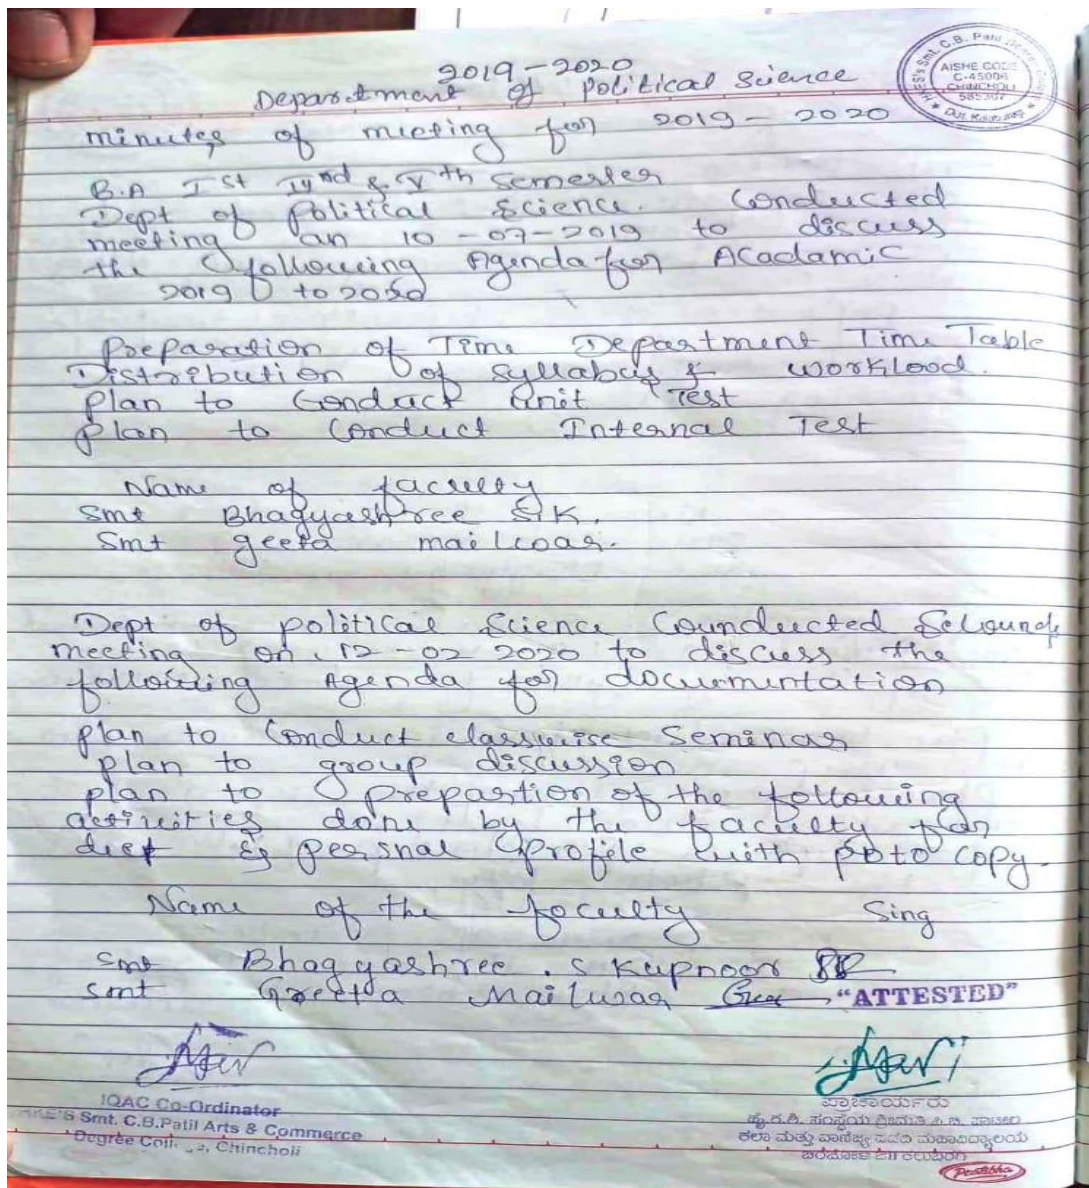 2019-2020
Department of political Science
minutes of meeting for 2019 - 2020
B.A Ist IIInd & Vth Semester
Dept of political Science. Conducted
meeting an 10 -07-2019 to discuss
the following Agenda for Acadamic
2019 to 2020
Preparation of Time Department Time Table
Distribution of syllabus & workload.
plan to Conduct Unit Test
plan to Conduct Internal Test
Name of faculty
Smt Bhagyashree S.K.
Smt geeta mailwar.
Dept of political Science Counducted Secound
meeting on .12 -02 2020 to discuss the
following Agenda for documintation
plan to Conduct classwise Seminar
plan to group discussion
plan to prepartion of the following
activities done by the faculty for
persnal profile with poto copy.
Name of the foculty Sing
Smt Bhagyashree . S Kupnoor
Smt Geeta Mailwar "ATTESTED"
IQAC Co-Ordinator
Smt. C.B.Patil Arts & Commerce
Degree Chincholi
ಪ್ರಾಚಾರ್ಯರು
ಕಲಾ ಮತ್ತು ವಾಣಿಜ್ಯ ಪದವಿ ಮಹಾವಿದ್ಯಾಲಯ
Pratibha
Smt. C.B. Patil Degree
AISHE CODE
C-45006
CHINCHOLI
585307